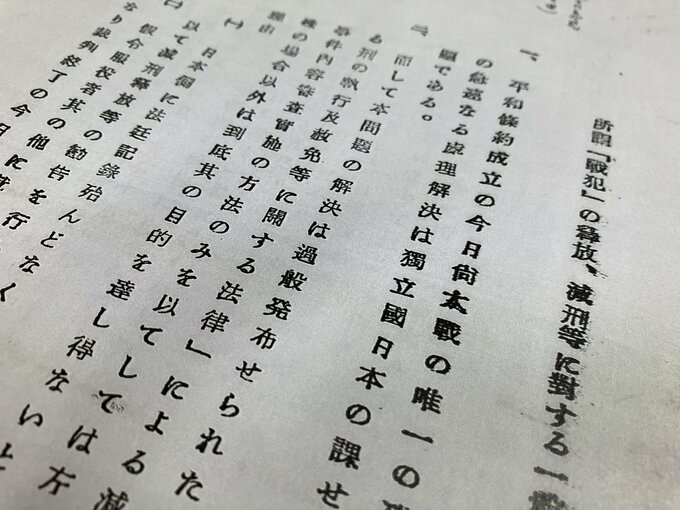 所謂「戰犯」の釋放、減刑等に對する一
一、平和條約成立の今日尙本戰の唯一の
の急速なる處理解決は獨立國日本の課せ
題である。
二、而して本問題の解決は過般発布せられた
る刑の執行及赦免等に關する法律」による減
事件內容審査實施の方法のみを以てしては
の場合以外は到底其の目的を達し得ないと
理由
(一) 日本側に法廷記錄殆んどなく
以て減刑釋放等の勸告を行
(二) 假令服役者其の他に
り裁判終了の今日